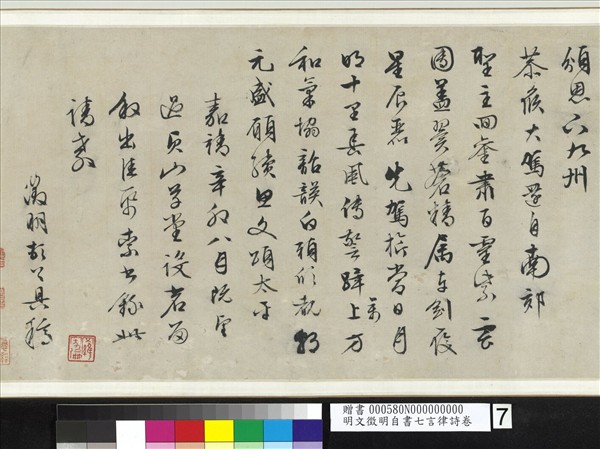 頒恩下九州
恭候大駕還自南郊
聖主回鑾肅百靈紫雲
團蓋翼蒼精屬車劍履
星辰麗先駕旂常日月
明十里春風傳警蹕萬上方
和氣協韶頀白頭欣覩朝
元盛願續思文頌太平
嘉靖辛卯八月既望
過山草堂設茗
出佳紙索書錄此
請教
徵明頓首具稿
贈書 000580N000000000
明文徵明自書七言律詩卷
7